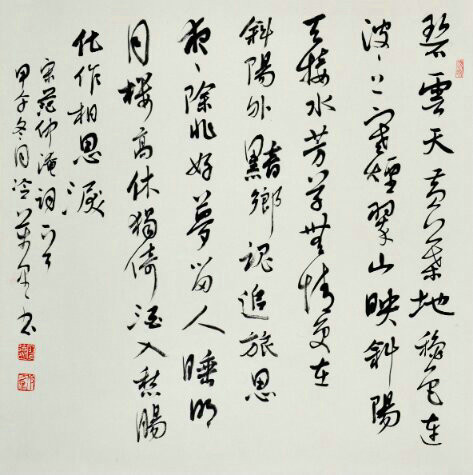 碧雲天黄葉地秋色連
波〻上寒煙翠山映斜陽
天接水芳草無情更在
斜陽外黯鄉魂追旅思
夜〻除非好夢留人睡明
月樓高休獨倚酒入愁腸
化作相思淚
宋范仲淹詞
甲午冬月冷萬里书